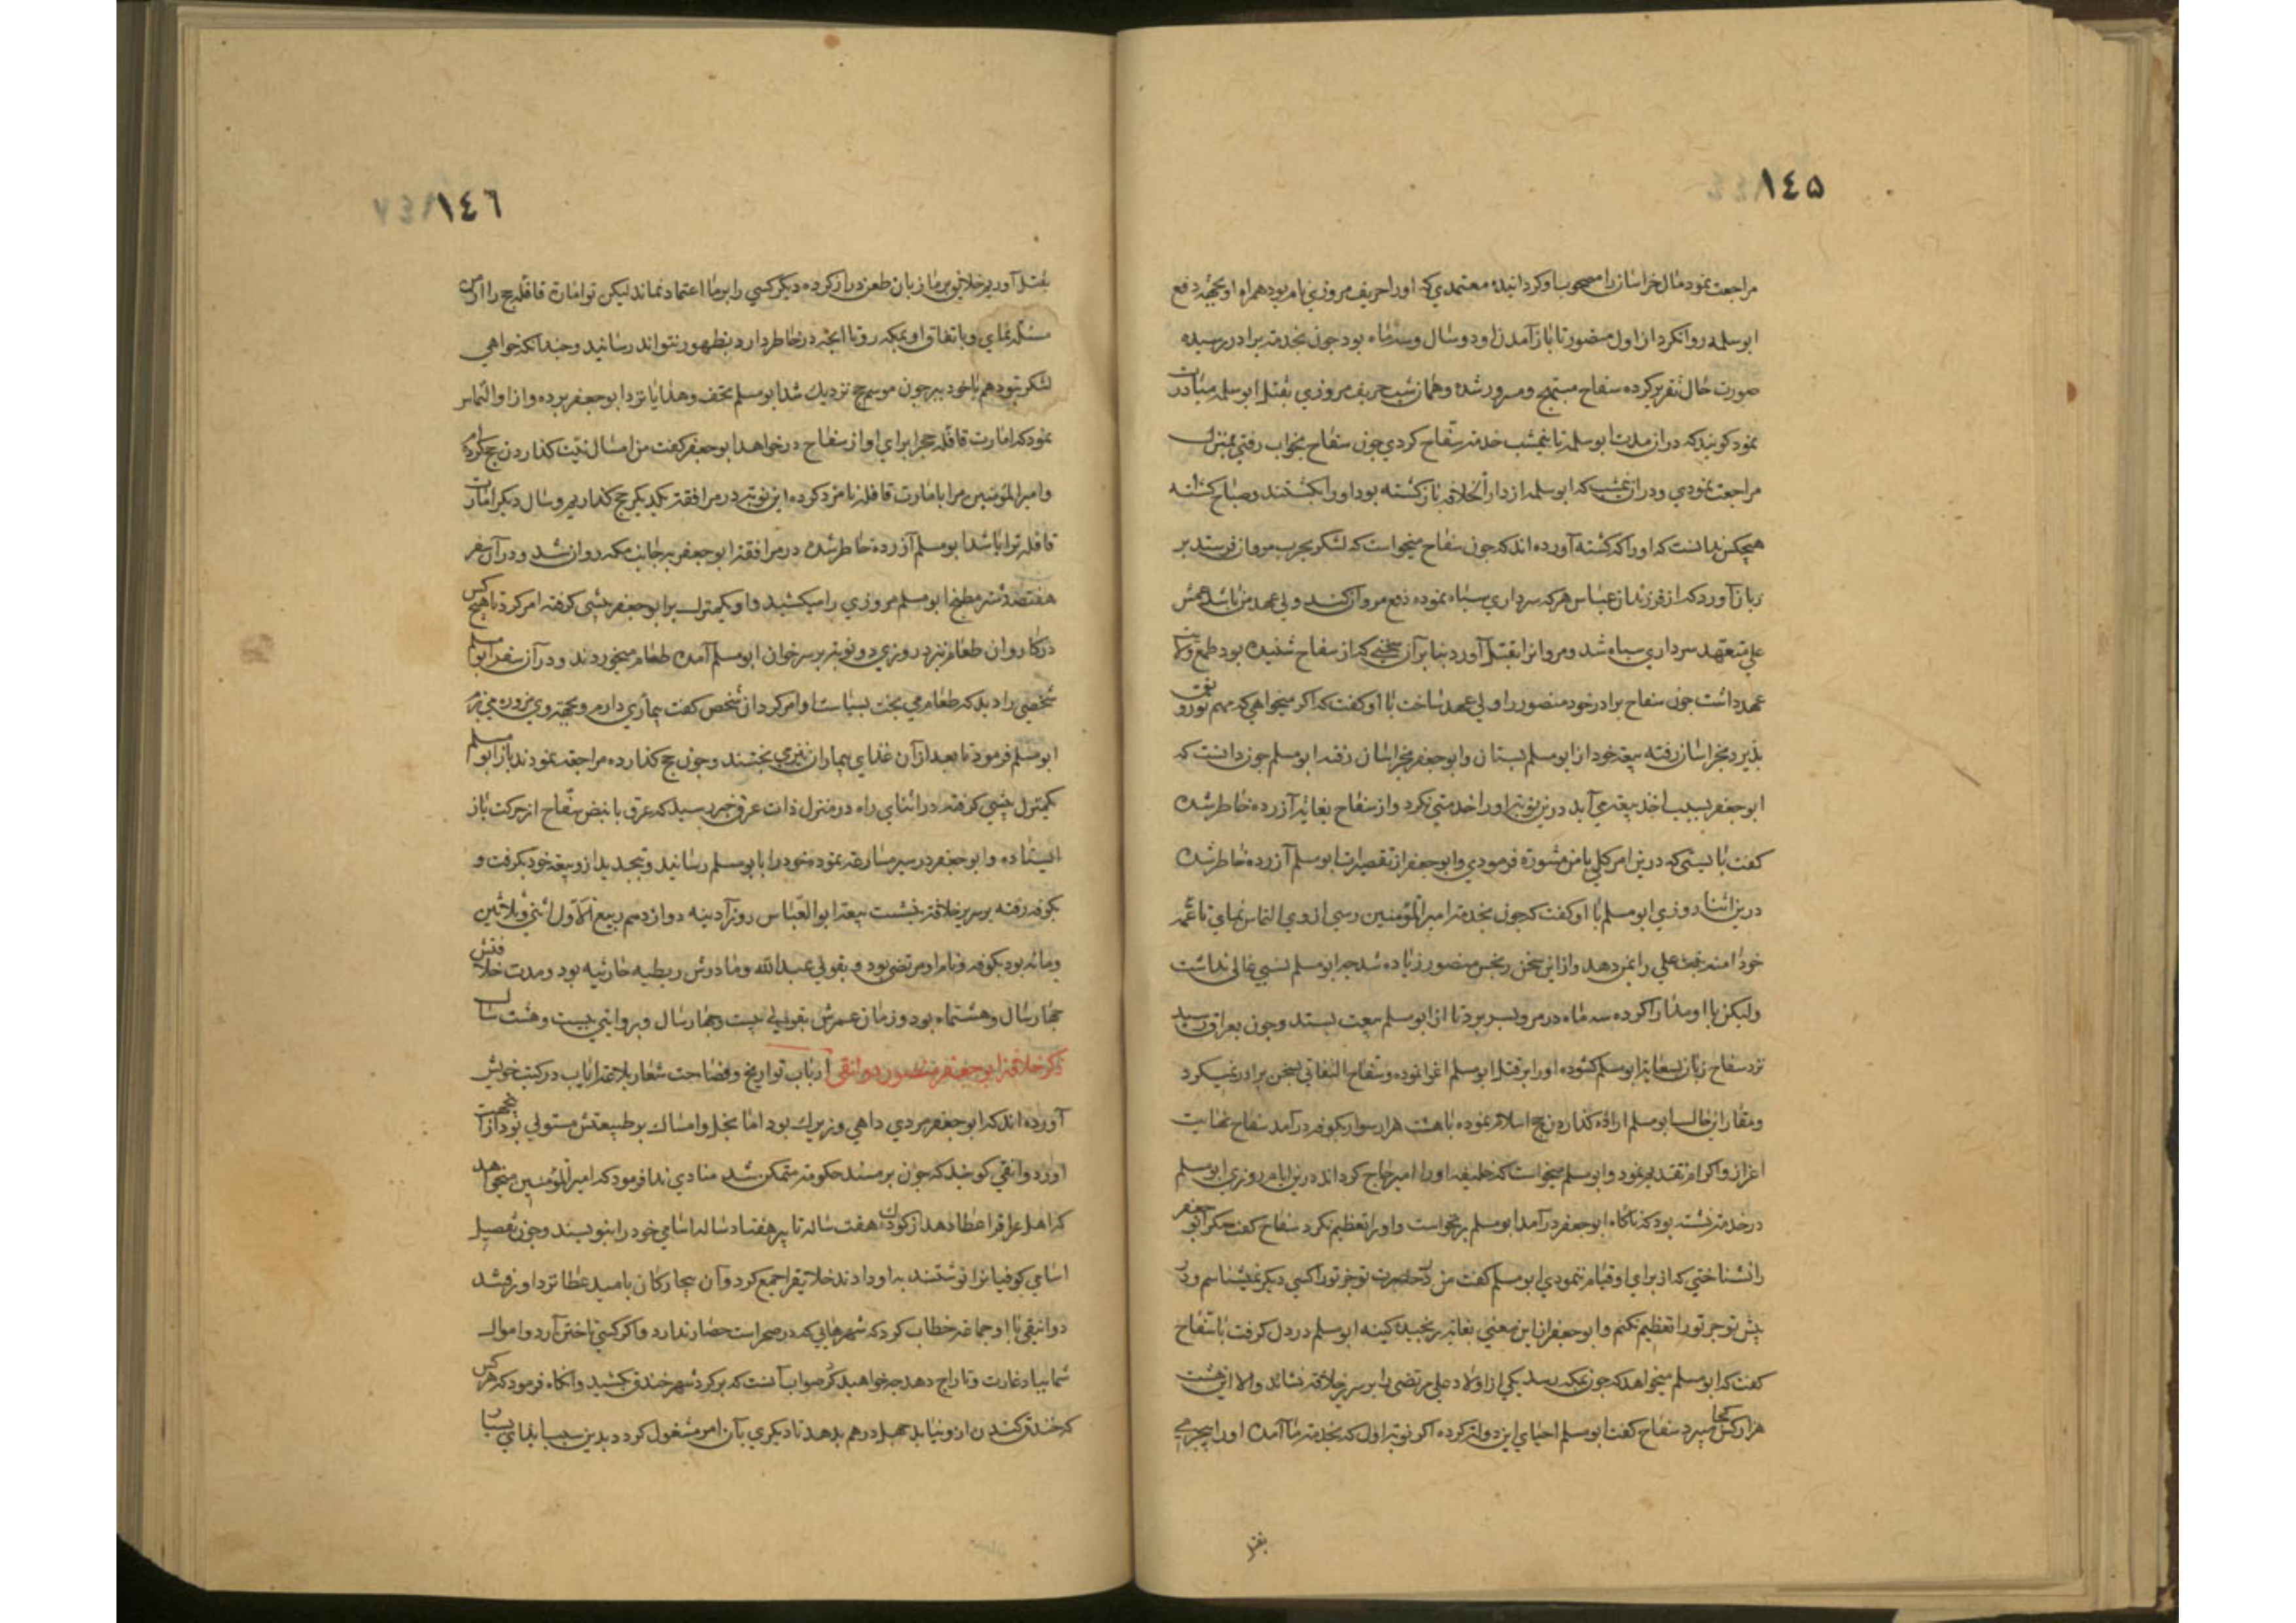 ١٤٥
مراجعت نمود مال خراسان را مصحوب او کردانیده معتمدی که او را حریف مروزی نام بود همراه او بجهة دفع
ابوسلمه روانکرد از اول منصور تا باز آمدن او دو سال و سه ماه بود جون بخدمت برادر رسیده
صورت حال تقریر کرده سفاح مبتهج و مسرور شده و همان شب حریف مروزی بقتل ابوسلمه مبادرت
نمود کویند که در آن مدت ابوسلمه تا نیمشب خدمت سفاح کردی جون سفاح بخواب رفتی بمنزل
مراجعت نمودی و در آن شب که ابوسلمه از دار الخلافه باز کشته بود او را بکشتند و صباح
هیچکس ندانست که او را که کشته آورده اند که جون سفاح میخواست که لشکر بحرب مروان فرستد بر
زبان آورد که از فرزندان عباس هرکه سرداری سپاه نموده دفع مروان کند ولی عهد من باشد عمش
علی متعهد سرداری سپاه شد و مروانرا بقتل آورد بنا بر آن سخنی که از سفاح شنیده بود طمع ولایت
عهد داشت جون سفاح برادر خود منصور را ولی عهد ساخت با او کفت که اکر میخواهی که مهم تو رونق
پذیرد بخراسان رفته بیعة خود از ابومسلم بستان و ابوجعفر بخراسان رفته ابومسلم جون دانست که
ابوجعفر بسبب اخذ بیعة می آید درین نوبة او را خدمتی نکرد و از سفاح بغایة آزرده خاطر شده
کفت بایستی که درین امر کلی با من مشورة فرمودی و ابوجعفر از تقصیرات ابومسلم آزرده خاطر شده
درین اثنا روزی ابومسلم با او کفت که جون بخدمة امیر المؤمنین رسی از وی التماس نمای تا عمه
خود امنه بنت علی را بمن دهد و از این سخن رنجش منصور زیاده شد جه ابومسلم نسبی عالی نداشت
ولیکن با او مدارا کرده سه ماه در مرو بسر برد تا از ابومسلم بیعت بستد و جون بعراق رسید
نزد سفاح زبان بسعایة ابومسلم کشوده او را بر قتل ابومسلم اغرا نموده و سفاح التفاتی بسخن برادر نمیکرد
و مقارن این حال ابومسلم اراده کذاردن حج اسلام نموده با هشت هزار سوار بکوفه درآمد سفاح نهایت
اعزاز و اکرام تقدیم نمود و ابومسلم میخواست که خلیفه او را امیر حاج کرداند درین ایام روزی ابومسلم
در خدمة نشسته بود که ناکاه ابوجعفر درآمد ابومسلم برنخواست و او را تعظیم نکرد سفاح کفت مکر ابوجعفر
را نشناختی که از برای او قیام ننمودی ابومسلم کفت من در حضرت تو جز تو را کسی دیکر نمیشناسم و در
پیش تو جز تو را تعظیم نکنم و ابوجعفر از این معنی بغایة رنجیده کینه ابومسلم در دل کرفت با سفاح
کفت که ابومسلم میخواهد که جون بمکه رسد یکی از اولاد علی مرتضی را بر سریر خلافة نشاند والا این هشت
هزار کس کجا میبرد سفاح کفت ابومسلم احیای این دولة کرده اکر نوبة اول که بخدمة ما آمده او را
بقتل
١٤٦
بقتل آوریم خلایق بر ما زبان طعن دراز کرده دیکر کسی را بر ما اعتماد نماند لیکن تو امارت قافله حج را از من
مسئلة نمای و باتفاق او بمکه رو تا انچه در خاطر دارد بظهور نتواند رسانید و جندانکه خواهی
لشکر تو هم با خود ببر جون موسم حج نزدیک شد ابومسلم تحف و هدایا نزد ابوجعفر برده و از او التماس
نمود که امارت قافله حج را برای او از سفاح درخواهد ابوجعفر کفت من امسال نیّت کذاردن حج کرده ام
و امیرالمؤمنین مرا بامارت قافله نامزد کرده این نوبة در مرافقة یکدیکر حج کذاریم و سال دیکر امارت
قافله ترا باشد ابومسلم آزرده خاطر شده در مرافقة ابوجعفر بجانب مکه روان شد و در آن سفر
هفتصد شتر مطبخ ابومسلم مروزی را میکشید و او یکمنزل بر ابوجعفر پیشی کرفته امر کرد تا هیچ کس
در کاروان طعام نپزد روزی دو نوبة بر سر خوان ابومسلم آمده طعام میخوردند و در آن سفر ابومسلم
شخصی را دید که طعام می پخت بسیاست او امر کرد آن شخص کفت بیماری دارم و بجهة وی مزوره می پزم
ابومسلم فرمود تا بعد از آن غذای بیماران نیزی پختند و جون حج کذارده مراجعة نمودند باز ابومسلم
یکمنزل پیشی کرفته در اثنای راه در منزل ذات عرق خبر رسید که عرق بانبض سفّاح از حرکت باز
ایستاده و ابوجعفر در سیر مسارعة نموده خود را بابومسلم رسانید و تجدیدا از و بیعة خود بکرفت و
بکوفه رفته بر سریر خلافة بنشست بیعة ابوالعبّاس روز آدینه دوازدهم ربیع الاول اثنی و ثلاثین
و مائه بود بکوفه و نام او مرتضی بود و بقولی عبدالله و مادرش ربطیه حارثیه بود و مدت خلافتش
جهار سال و هشتماه بود و زمان عمرش بقولی بیست و جهار سال و بروایتی بیست و هشت سال
ذکر خلافة ابوجعفر منصور دوانقی ارباب تواریخ و فصاحت شعار بلاغة ایاب در کتب خویش
آورده اند که ابوجعفر مردی داهی و زیرک بود اما بخل و امساک بر طبیعتش مستولی بود از آنجهت
او را دوانقی کویند که جون بر مسند حکومة متمکن شد منادی ندا فرمود که امیرالمؤمنین میخواهد
که اهل عراقرا عطا دهد از کودک هفت ساله تا پیر هفتاد ساله اسامی خود را بنویسند و جون تفصیل
اسامی کوفیانرا نوشتند باو دادند خلایقرا جمع کرد و آن بیجارکان بامید عطا نزد او رفتند
دوانیقی با او جماعة خطاب کرد که شهرهایی که در صحراست حصار ندارد و اکر کسی تاختن آرد و اموال
شما بباد غارت و تاراج دهد جه خواهید کرد صواب آنست که بر کرد شهر خندق بکشید و انکاه فرمود که هر کس
که خندق کندن از و نیاید جهل درهم بدهد تا دیکری بآن امر مشغول کردد بدین سبب ایذای بسیار